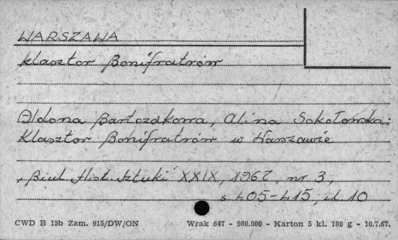 WARSZAWA
Klasztor Bonifratrów
Aldona Bartczakowa, Alina Sokołowska:
Klasztor Bonifratrów w Warszawie
"Biul. Hist. Sztuki" XXIX, 1967, nr 3,
s 405-415, il. 10
CWD B 15b Zam. 915/DW/ON Wrak 647 - 980.000 - Karton 5 kl. 180 g - 10.7.67.